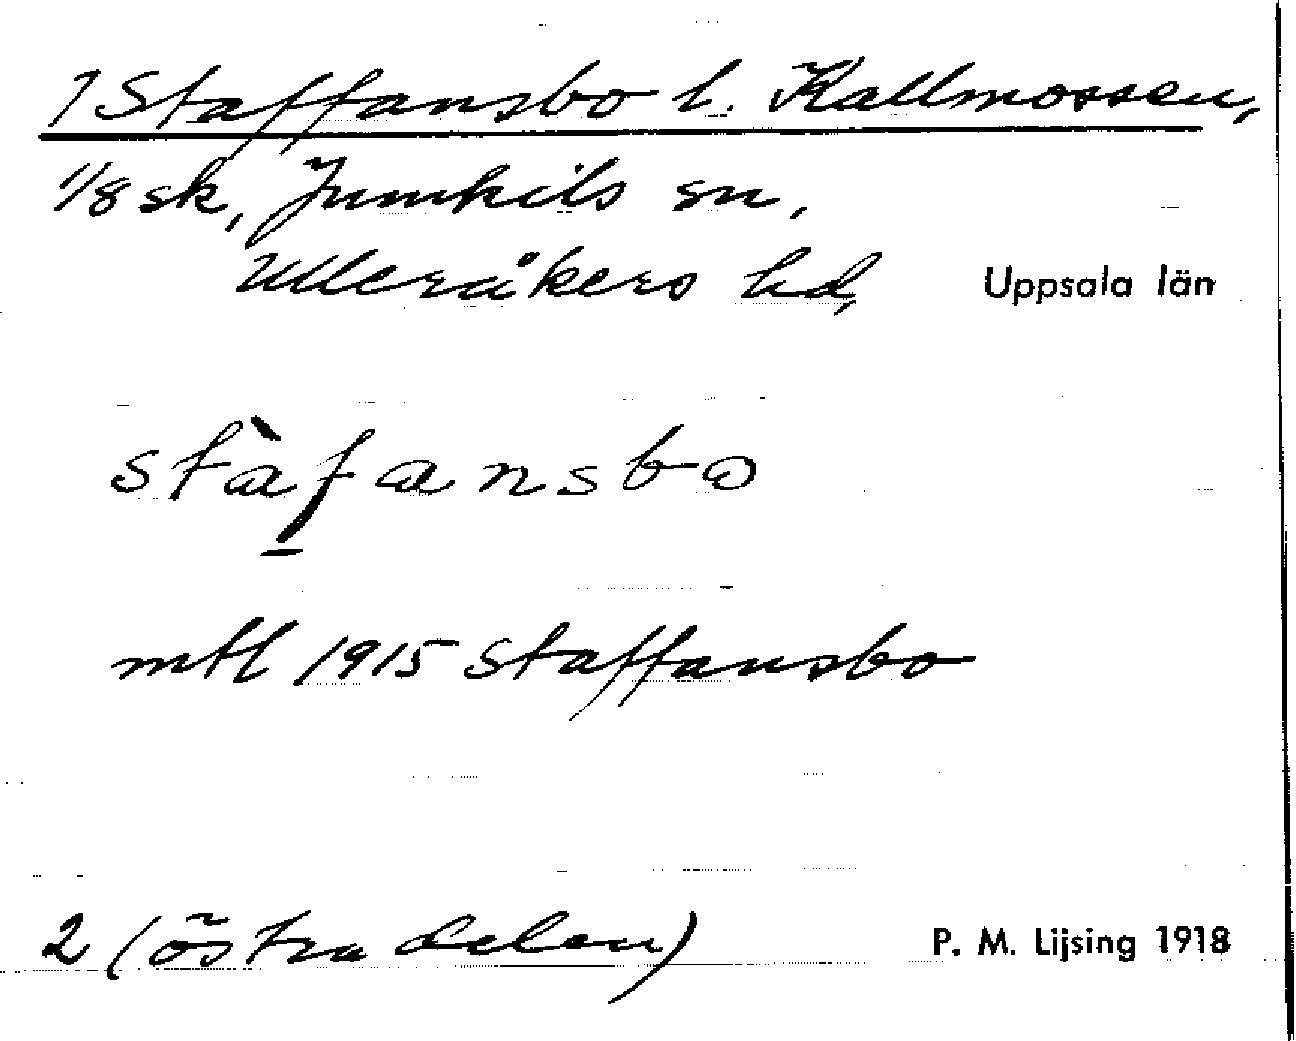 1 Staffansbo l. Kallmossen,
1/8 sk, Jumkils sn,
Ulleråkers hd, Uppsala län
stàfansbo
mtl 1915 Staffansbo
2 (östra delen) P. M. Lijsing 1918